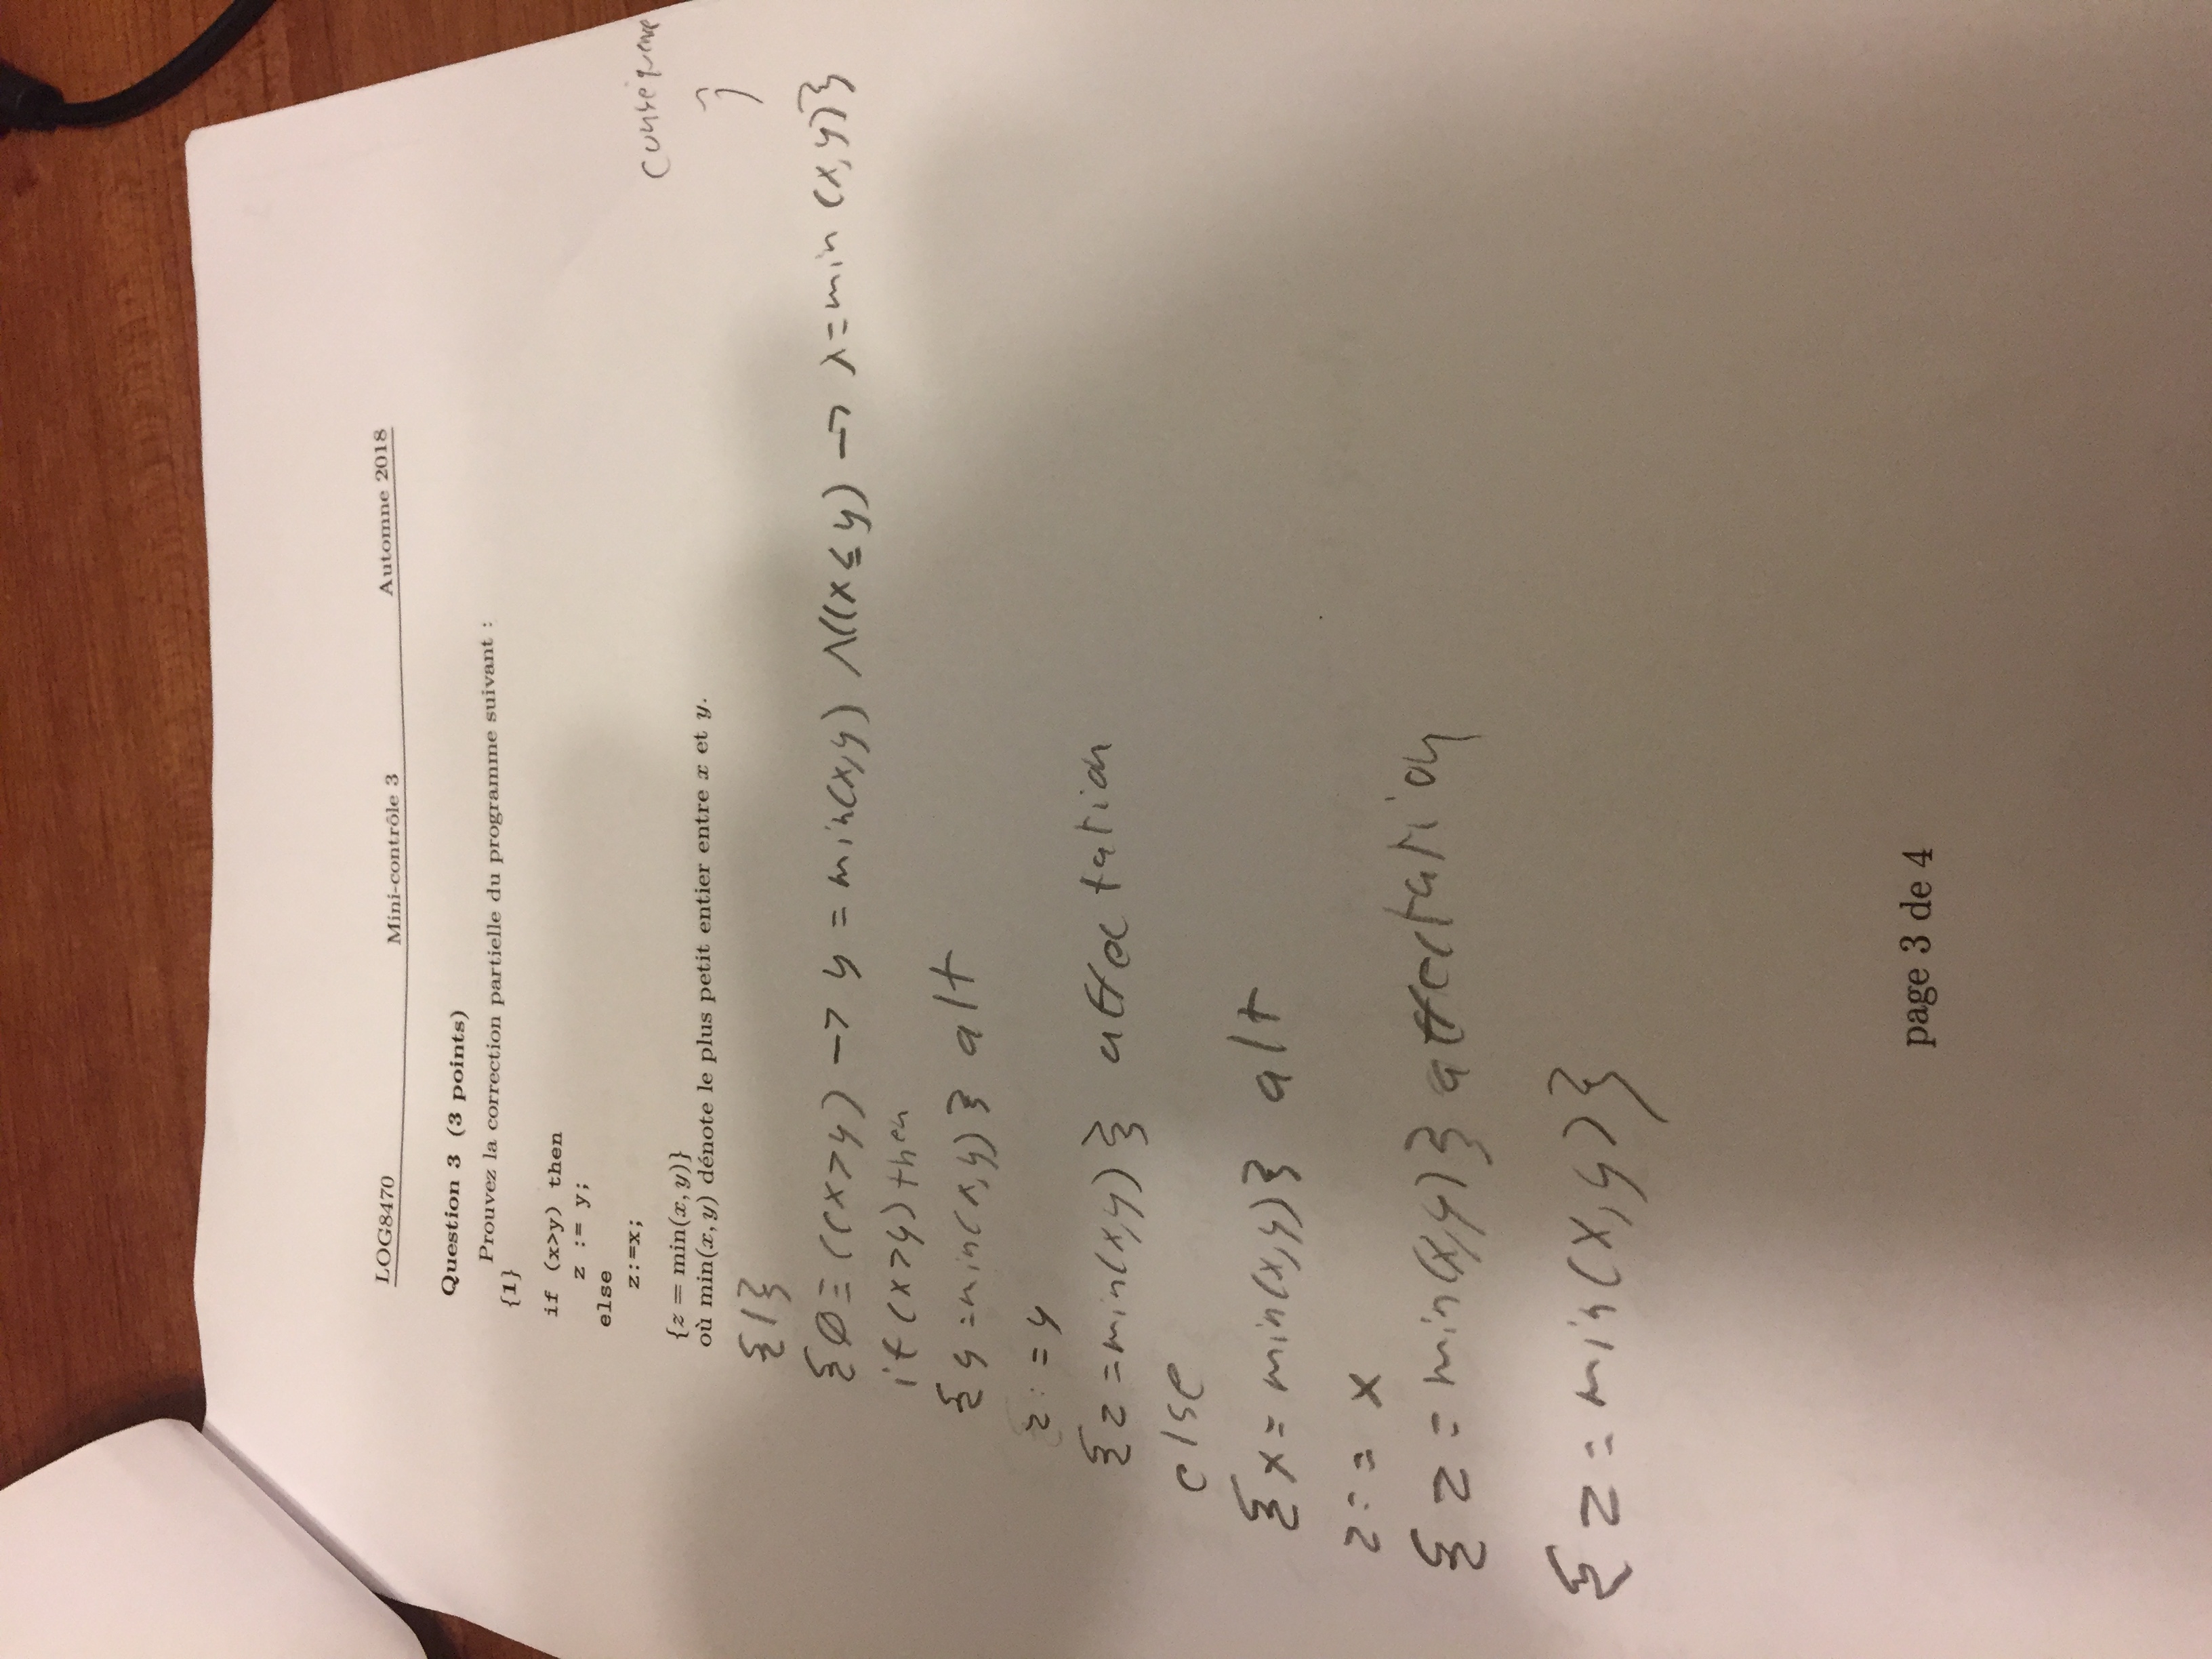 LOG8470 Mini-contrôle 3 Automne 2018
Question 3 (3 points)
Prouvez la correction partielle du programme suivant :
{1}
if (x>y) then
z := y;
else
z:=x;
{z = min(x, y)}
où min(x, y) dénote le plus petit entier entre x et y.
conséquence
{1}
{Ø≡((x>y) → y = min(x,y) ∧((x≤y) → x=min (x,y)}
if (x>y) then
{y=min(x,y)} alt
z:=y
{z=min(x,y)} affectation
else
{x=min(x,y)} alt
z:= x
{z=min(x,y)} affectation
{z=min(x,y)}
page 3 de 4